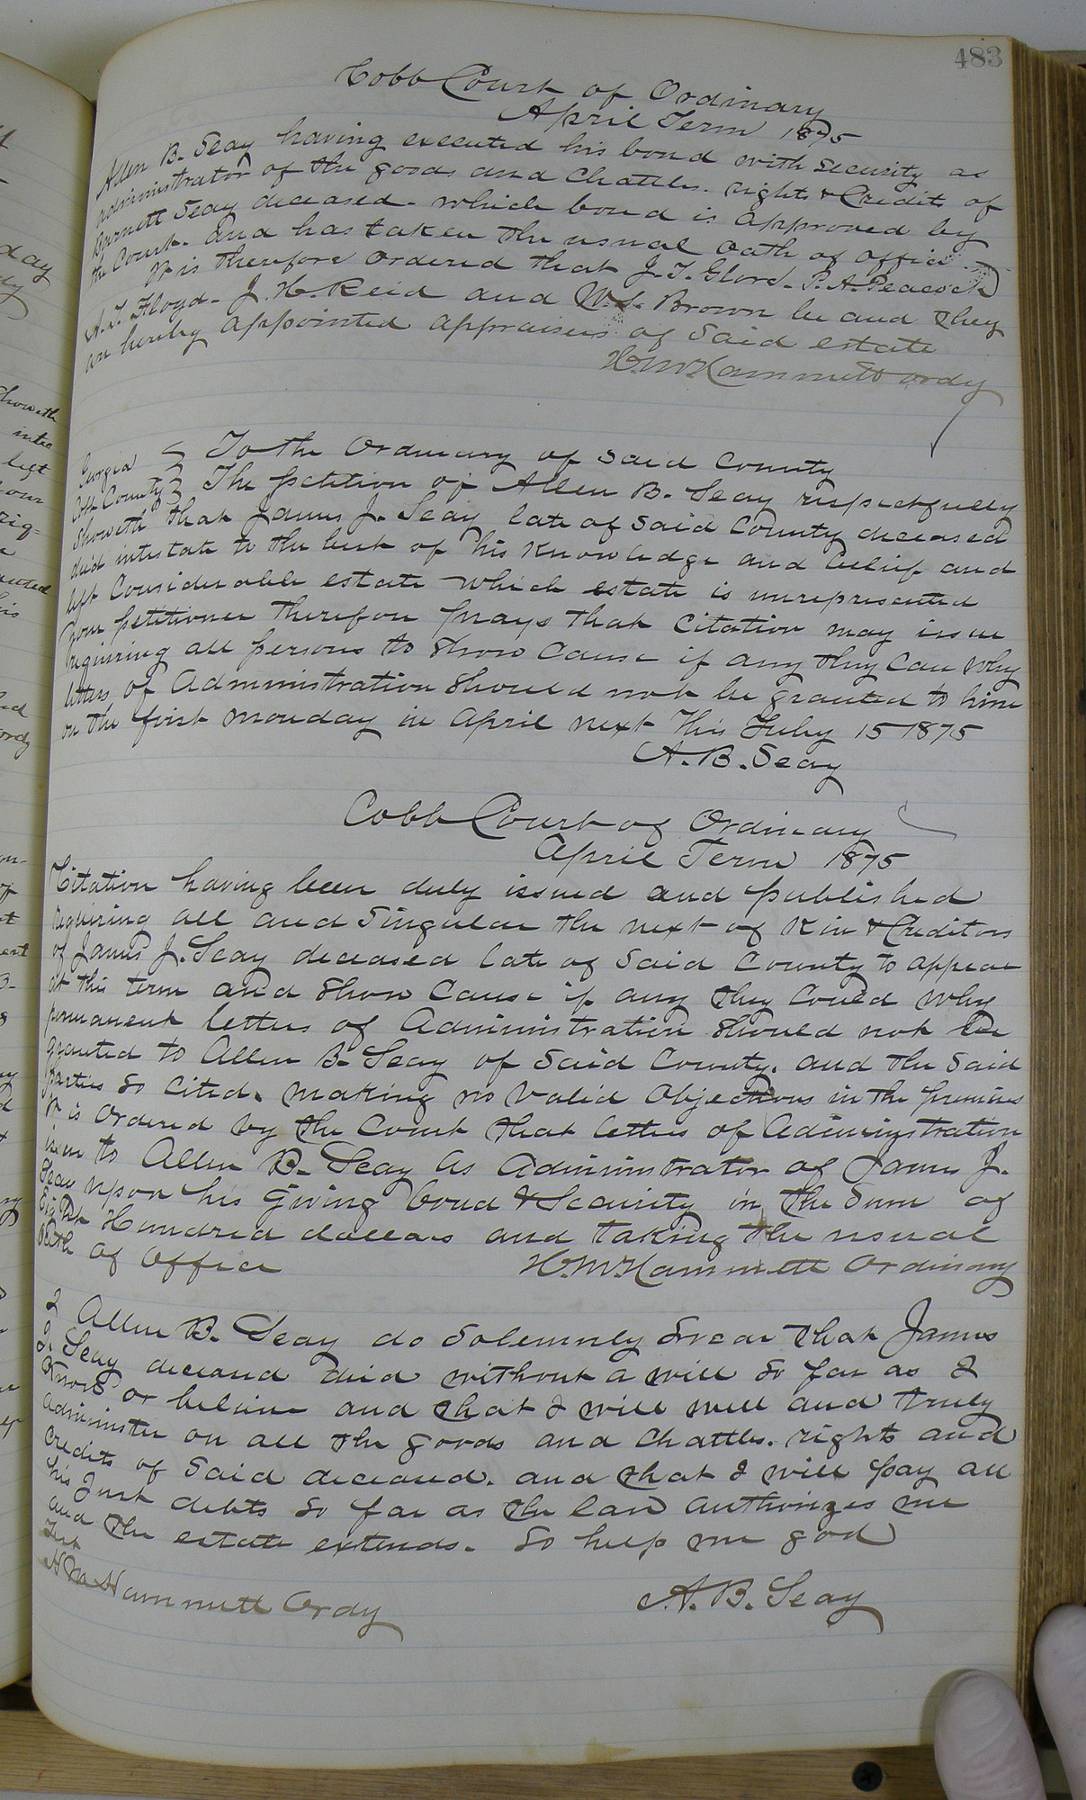 483
Cobb Court of Ordinary
April Term 1875
Allen B. Seay having executed his bond with security as
administrator of the goods and Chattles. rights & Credits of
Barnett Seay deceased. which bond is approved by
the Court. and has taken the usual oath of office.
It is therefore ordered that J. T. Glore. P. A. Peacock
A. J. Floyd. J. H. Reid and W. S. Brown be and they
are hereby appointed appraisers of said estate
H. M. Hammett ordy
Georgia } To the Ordinary of said County
Cobb County } The petition of Allen B. Seay respectfully
Showeth that James J. Seay late of said County deceased
died intestate to the best of his Knowledge and belief and
left Considerable estate which estate is unrepresented
your petitioner therefore prays that Citation may issue
requiring all persons to Show Cause if any they Can why
letters of Administration Should not be granted to him
on the first monday in April next This Feby 15 1875
A. B. Seay
Cobb Court of Ordinary
April Term 1875
Citation having been duly issued and published
requiring all and Singular the next of Kin & Creditors
of James J. Seay deceased late of Said County to appear
at this term and Show Cause if any they Could why
permanent letters of Administration Should not be
granted to Allen B. Seay of Said County. and the Said
parties So Cited. making no Valid Objections in the premises
It is Ordered by the Court that letters of Administration
issue to Allen B. Seay as Administrator of James J.
Seay upon his Giving bond & Security in the Sum of
Eight Hundred dollars and taking the usual
Oath of Office
H. M. Hammett Ordinary
I Allen B. Seay do Solemnly Swear that James
J. Seay deceased died without a will So far as I
Know or believe and that I will well and truly
Administer on all the goods and Chattles. rights and
Credits of Said deceased. and that I will pay all
his Just debts So far as the law authorizes me
and the estate extends. So help me god
Test
H. M. Hammett Ordy
A. B. Seay